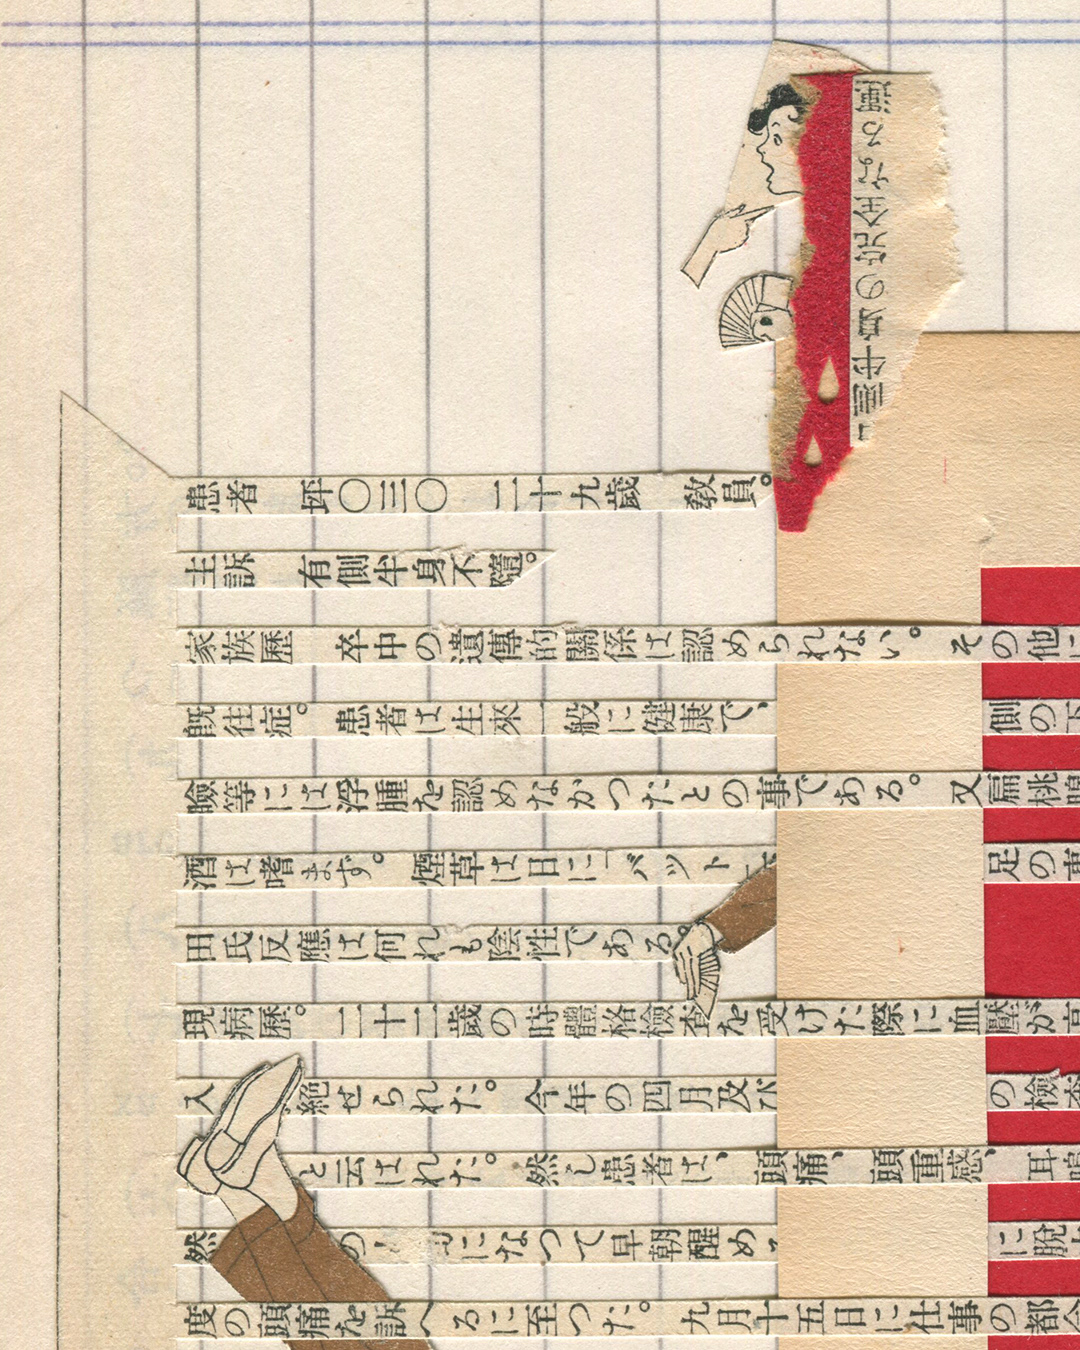 の完全なる
患者 坪〇三〇 二十九歲 教員。
主訴 有側半身不隨。
家族歷 卒中の遺傳的關係は認められない。 その他に
既往症。 患者は生來一般に健康で、 側の下
瞼等には浮腫を認めなかつたとの事である。 又扁桃
酒は嗜まず。 煙草は日に「バット 足の
田氏反應は何れも陰性である。
現病歷。 二十二歲の時體格檢査を受けた際に血壓が高
入 絕せられた。 今年の四月及び の檢査
と云はれた。 然し患者は、頭痛、頭重感、 耳鳴
然 の になつて早朝醒め に脫
度の頭痛を訴へるに至つた。 九月十五日に仕事の都合